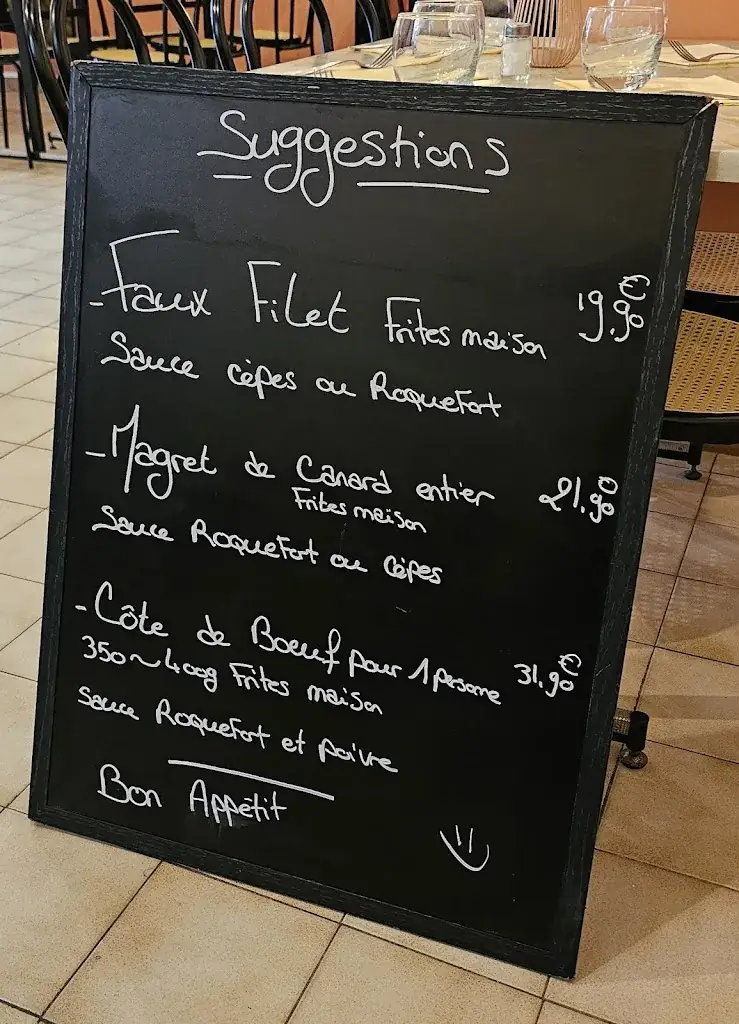 Suggestions
- Faux Filet Frites maison 19.90€
Sauce cèpes ou Roquefort
- Magret de Canard entier 21.90
Frites maison
Sauce Roquefort ou cèpes
- Côte de Boeuf pour 1 personne 31.90€
350~400g Frites maison
sauce Roquefort et poivre
Bon Appétit